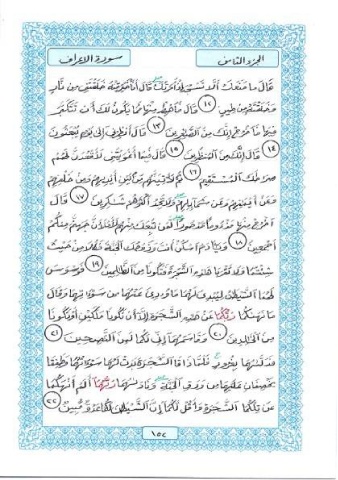 الجزء الثامن
سورة الاعراف
قال ما منعك ألا تسجد إذ أمرتك قال أنا خير منه خلقتني من نار
وخلقته من طين ١٢ قال فاهبط منها فما يكون لك أن تتكبر
فيها فاخرج إنك من الصٰغرين ١٣ قال أنظرني إلى يوم يبعثون
١٤ قال إنك من المنظرين ١٥ قال فبما أغويتني لأقعدن لهم
صرٰطك المستقيم ١٦ ثم لأتينهم من بين أيديهم ومن خلفهم
وعن أيمٰنهم وعن شمائلهم ولا تجد أكثرهم شٰكرين ١٧ قال
اخرج منها مذءوما مدحورا لمن تبعك منهم لأملأن جهنم منكم
أجمعين ١٨ ويٰـٔادم اسكن أنت وزوجك الجنة فكلا من حيث
شئتما ولا تقربا هٰذه الشجرة فتكونا من الظٰلمين ١٩ فوسوس
لهما الشيطٰن ليبدي لهما ما وري عنهما من سوءٰتهما وقال
ما نهٰكما ربكما عن هٰذه الشجرة إلا أن تكونا ملكين أو تكونا
من الخٰلدين ٢٠ وقاسمهما إني لكما لمن النٰصحين ٢١
فدلىٰهما بغرور فلما ذاقا الشجرة بدت لهما سوءٰتهما وطفقا
يخصفان عليهما من ورق الجنة ونادىٰهما ربهما ألم أنهكما
عن تلكما الشجرة وأقل لكما إن الشيطٰن لكما عدو مبين ٢٢
١٥٤